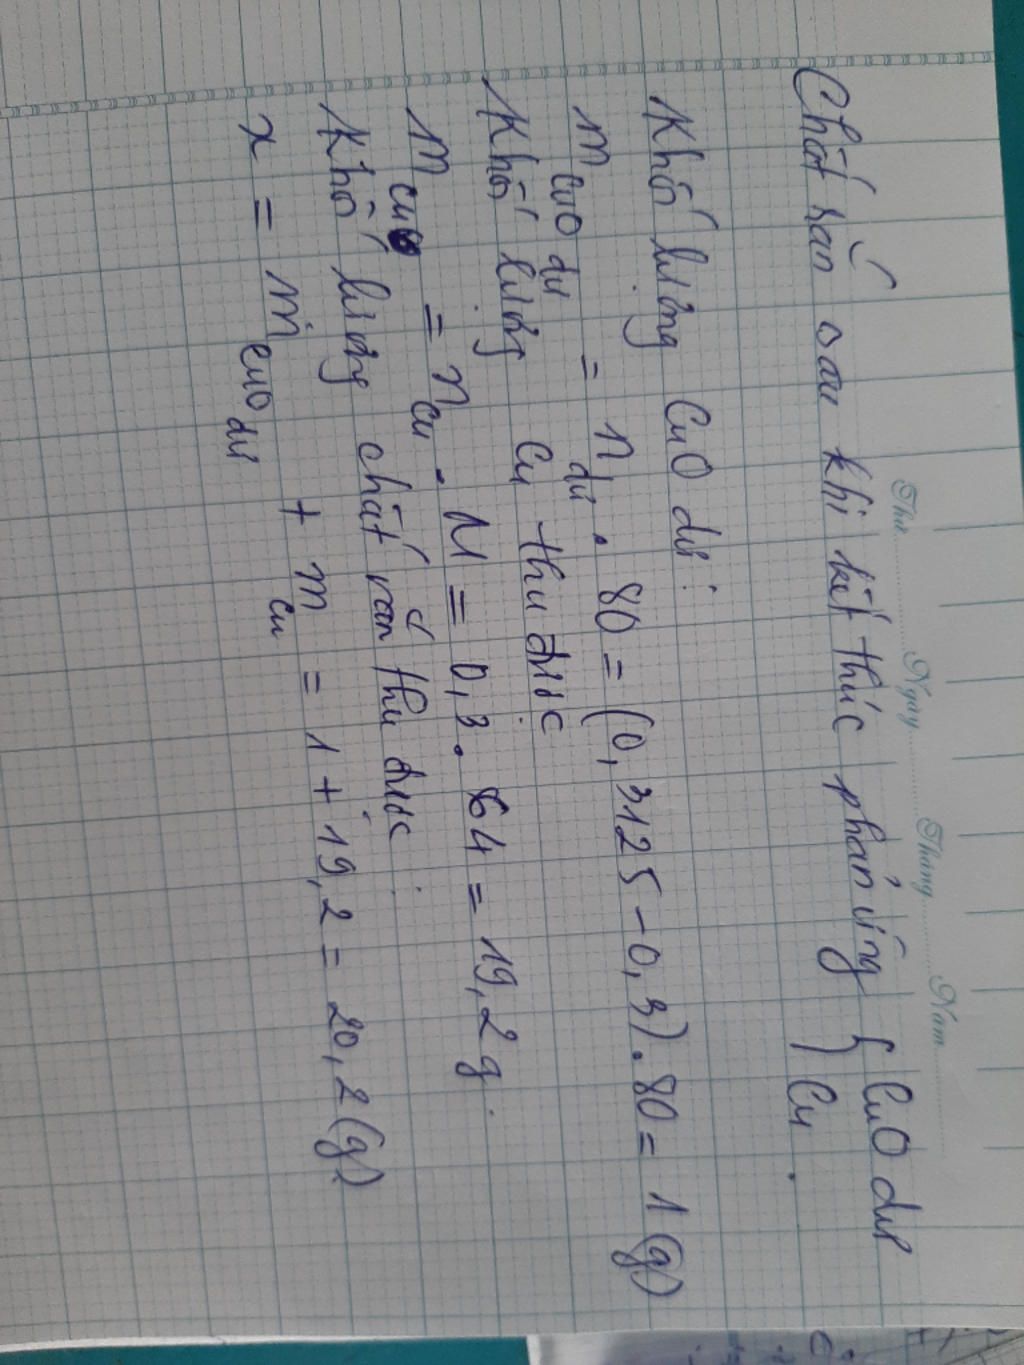 Thứ Ngày Tháng Năm
Chất rắn sau khi kết thúc phản ứng { CuO dư
Cu .
Khối lượng CuO dư :
m CuO dư = n dư . 80 = (0,3125 - 0,3) . 80 = 1 (g)
Khối lượng Cu thu được
m Cu = n Cu . M = 0,3 . 64 = 19,2 g .
Khối lượng chất rắn thu được .
x = m CuO dư + m Cu = 1 + 19,2 = 20,2 (g)